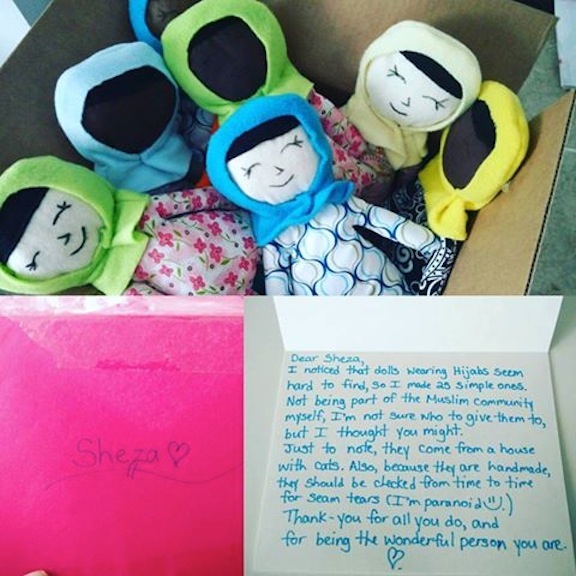 Sheza ♡
Dear Sheza,
I noticed that dolls wearing Hijabs seem
hard to find, so I made 25 simple ones.
Not being part of the Muslim community
myself, I'm not sure who to give them to,
but I thought you might.
Just to note, they come from a house
with cats. Also, because they are handmade,
they should be checked from time to time
for seam tears (I'm paranoid☺.)
Thank-you for all you do, and
for being the wonderful person you are.
♡.